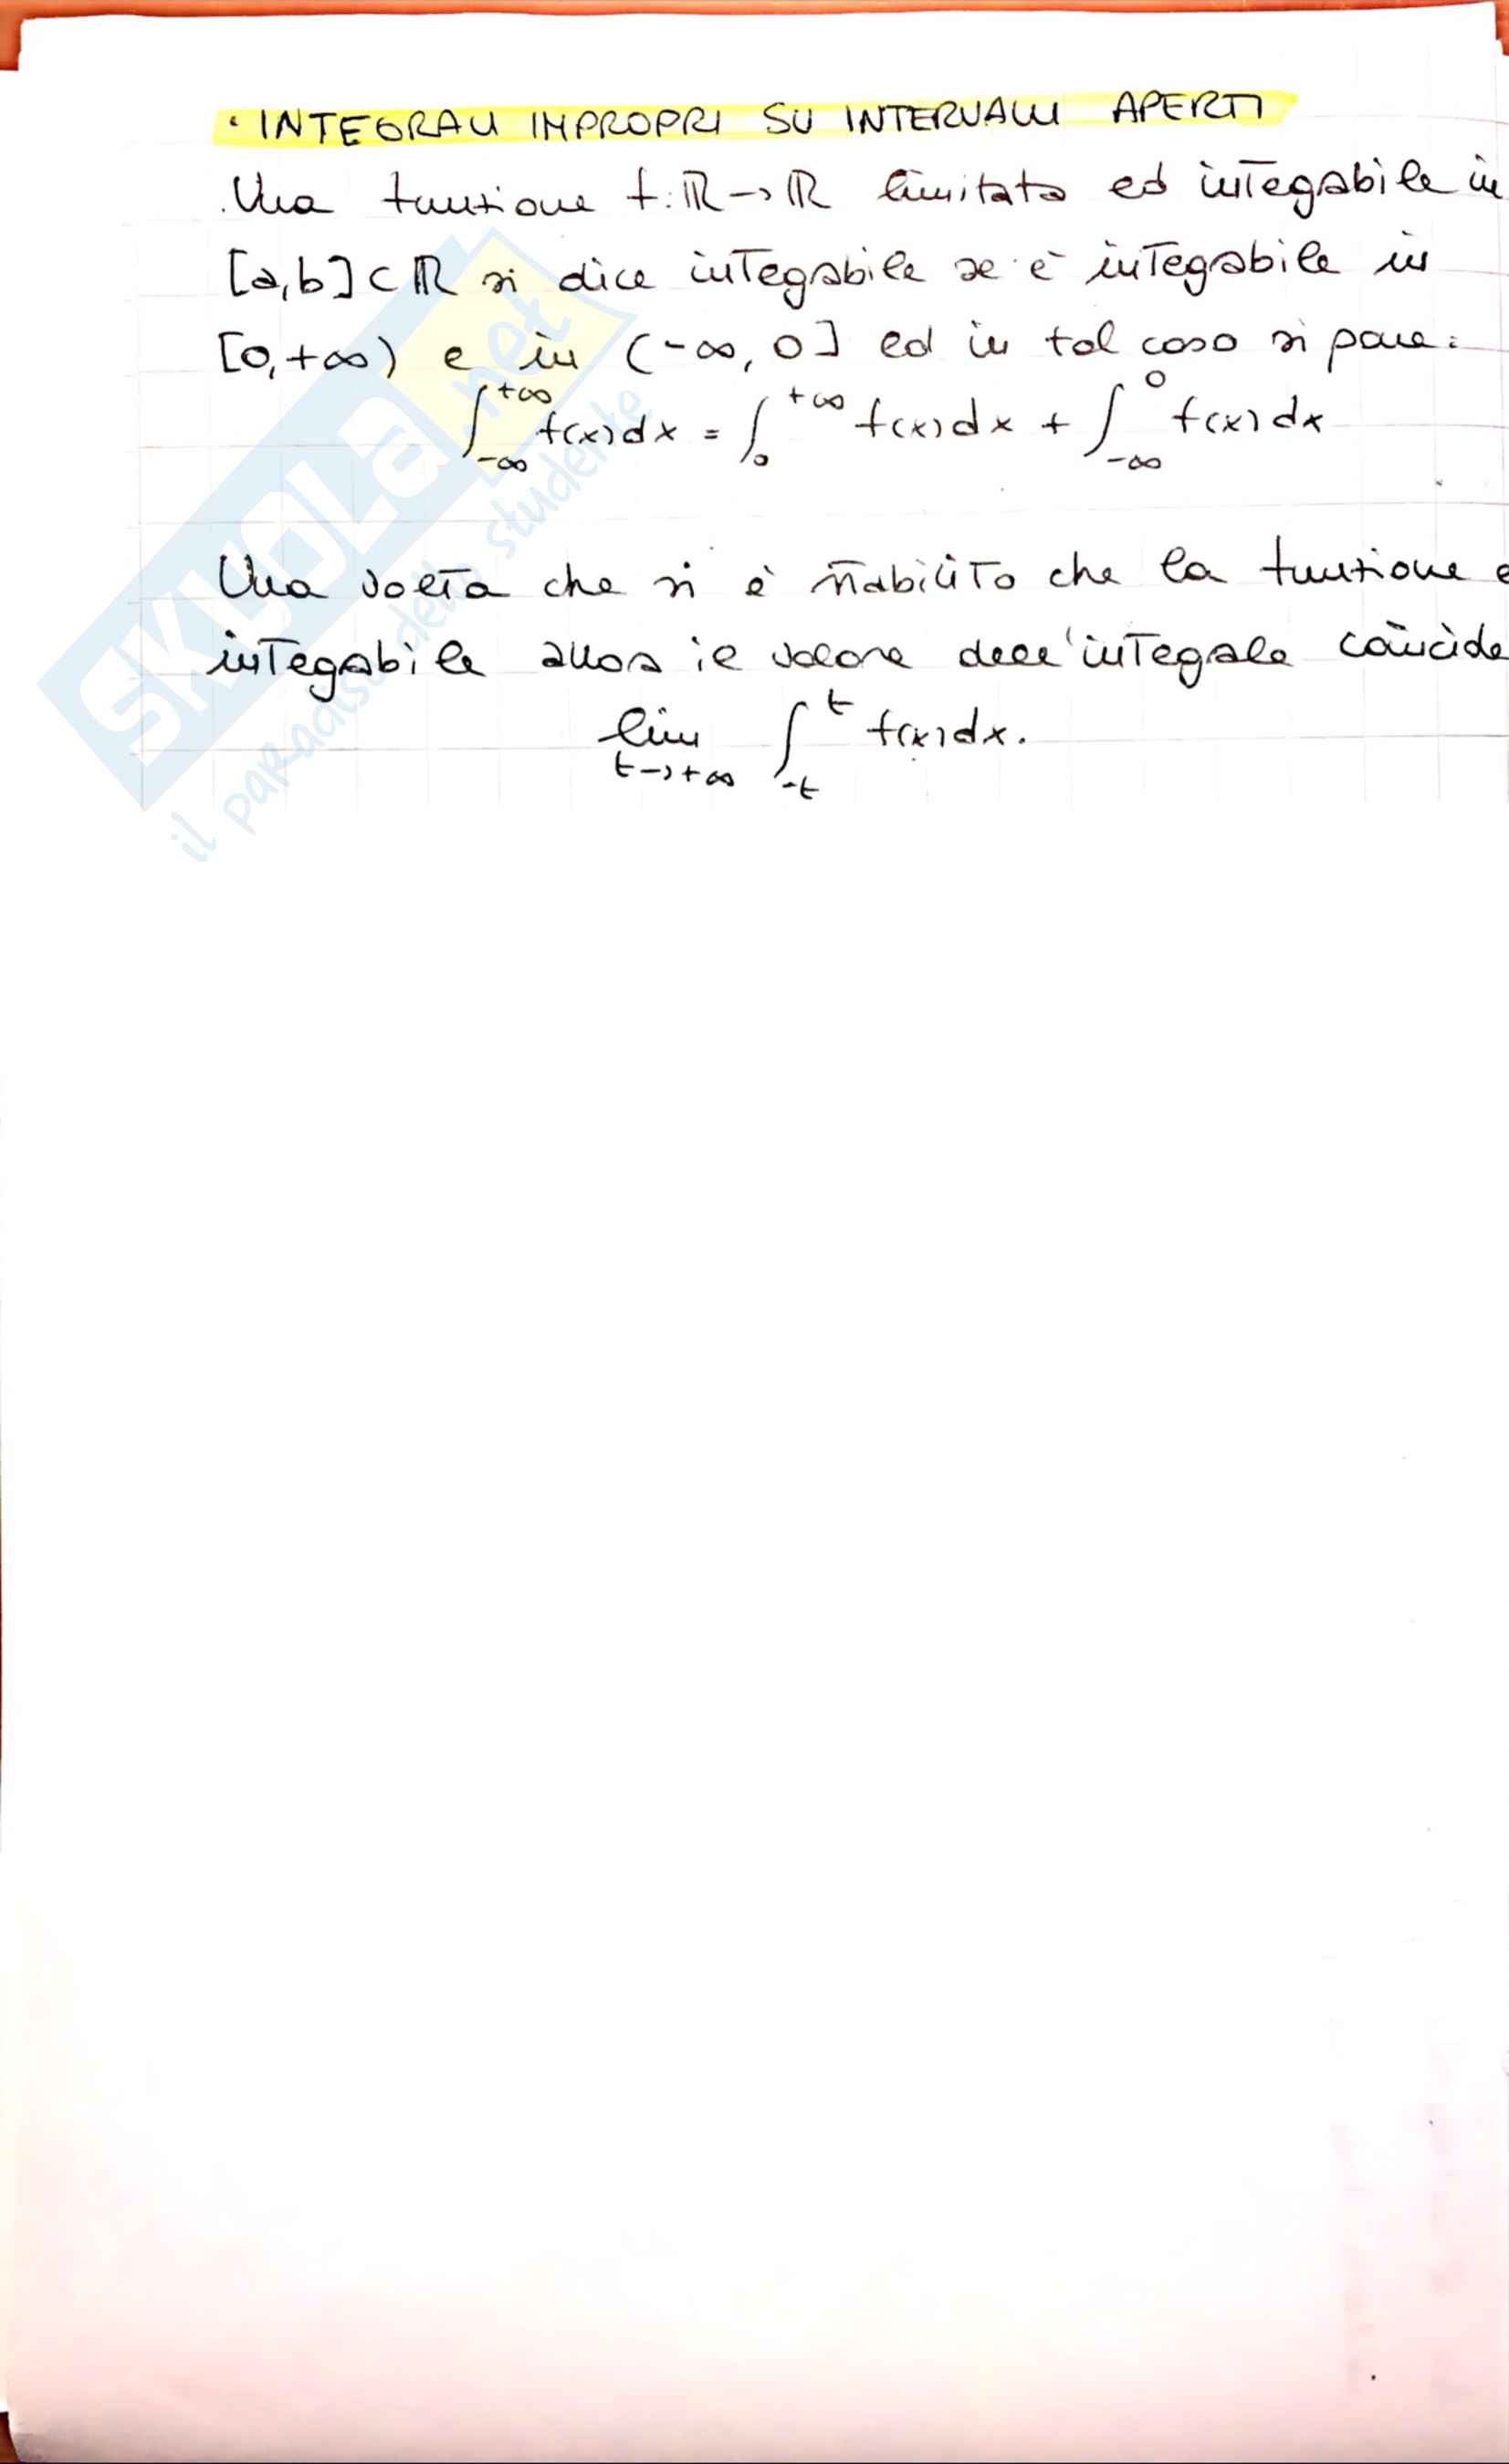 · INTEGRALI IMPROPRI SU INTERVALLI APERTI
Una funzione f: ℝ → ℝ limitata ed integabile in
[a,b] ⊂ ℝ si dice integabile se è integabile in
[0,+∞) e in (-∞, 0] ed in tal caso si pone:
∫_{-∞}^{+∞} f(x)dx = ∫_0^{+∞} f(x)dx + ∫_{-∞}^0 f(x)dx
Una volta che si è stabilito che la funzione è
integabile allora il valore dell'integale coincide
lim_{t→+∞} ∫_{-t}^{t} f(x)dx.
SKUOLA.net
il paradiso dello studente